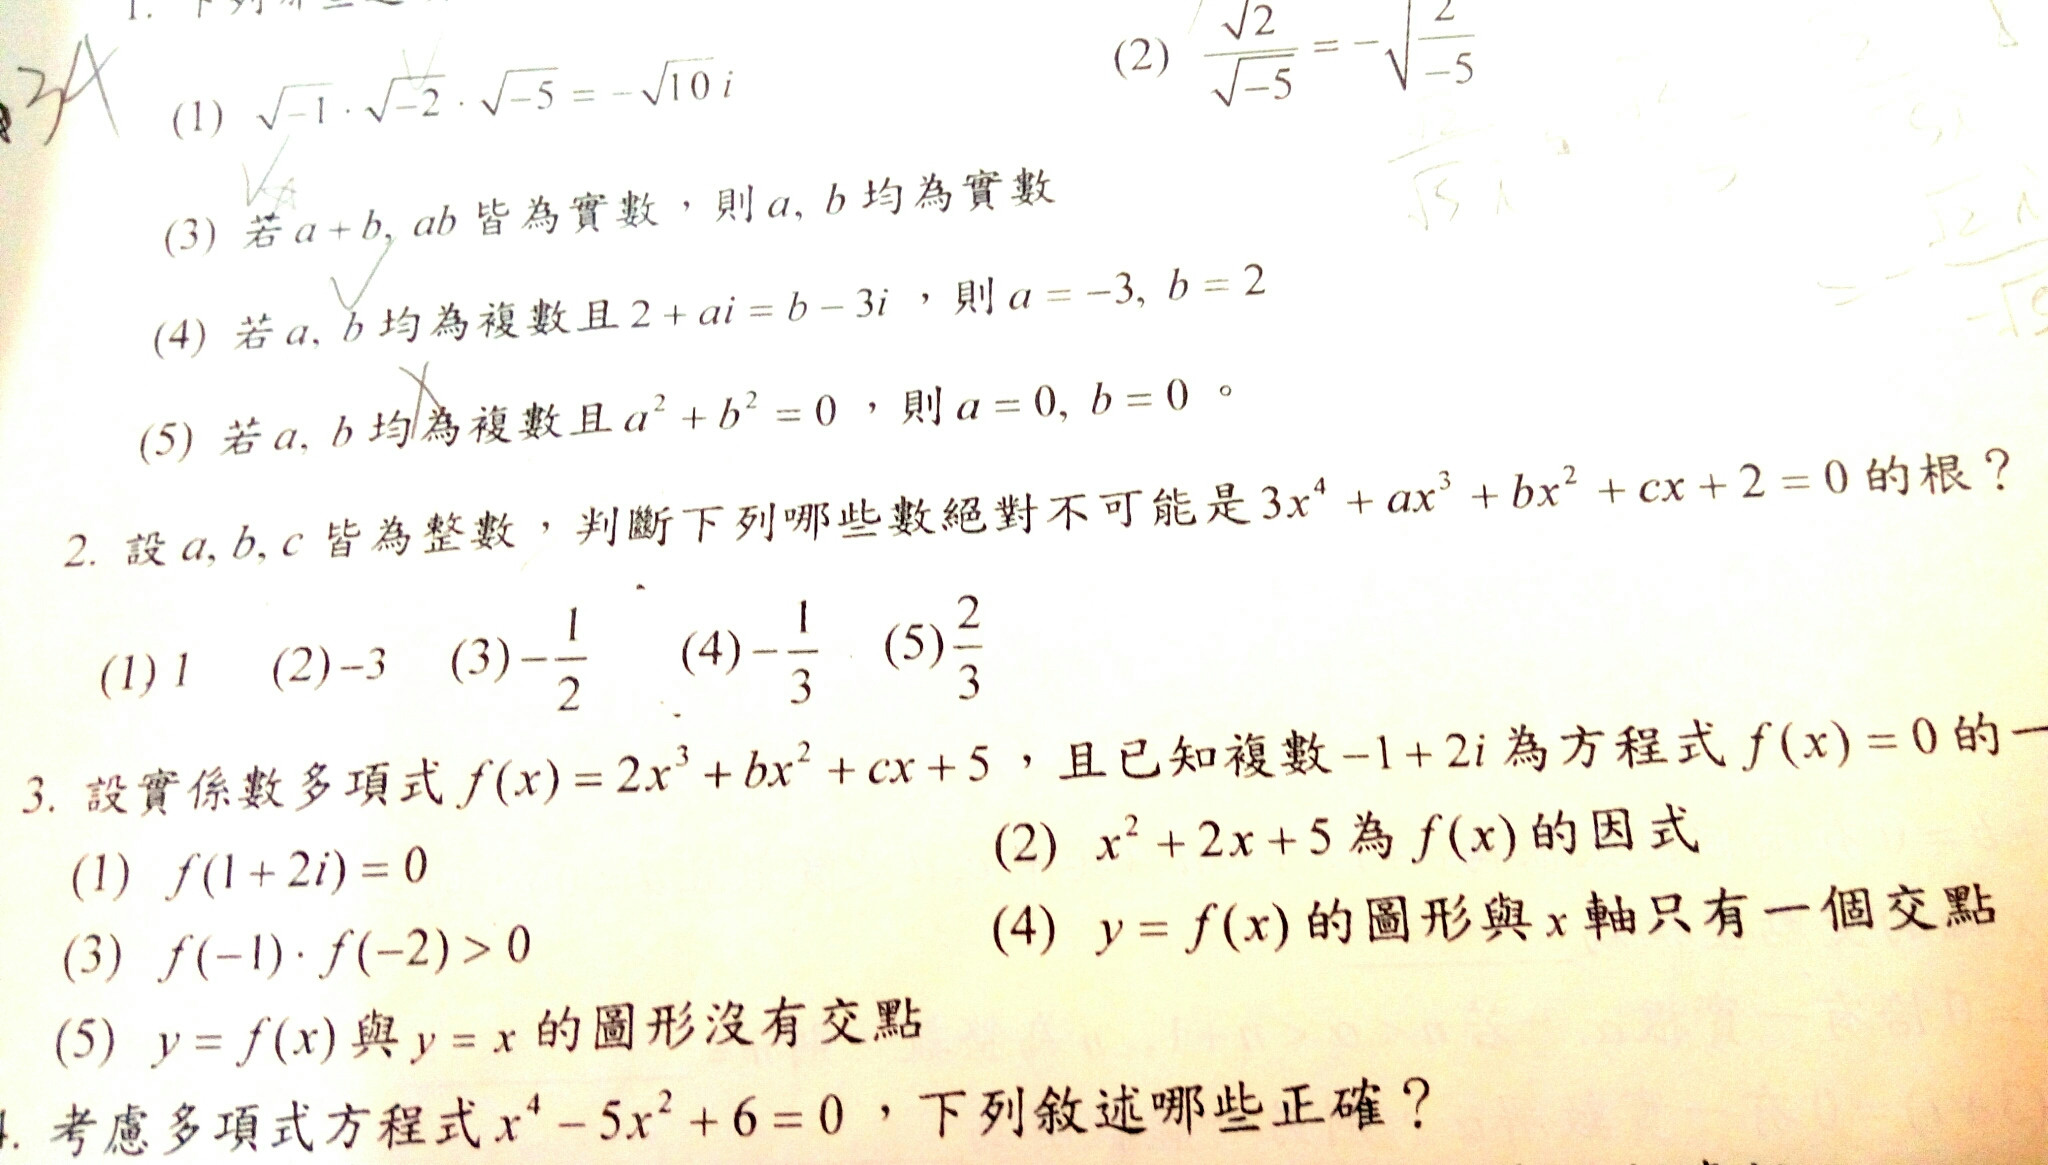 1. 下列哪些
(1) √-1 · √-2 · √-5 = -√10 i (2) √2/√-5 = -√(2/-5)
(3) 若 a + b, ab 皆為實數，則 a, b 均為實數
(4) 若 a, b 均為複數且 2 + ai = b - 3i ，則 a = -3, b = 2
(5) 若 a, b 均為複數且 a² + b² = 0 ，則 a = 0, b = 0 。
2. 設 a, b, c 皆為整數，判斷下列哪些數絕對不可能是 3x⁴ + ax³ + bx² + cx + 2 = 0 的根？
(1) 1 (2) -3 (3) -1/2 (4) -1/3 (5) 2/3
3. 設實係數多項式 f(x) = 2x³ + bx² + cx + 5 ，且已知複數 -1 + 2i 為方程式 f(x) = 0 的一
(1) f(1 + 2i) = 0 (2) x² + 2x + 5 為 f(x) 的因式
(3) f(-1) · f(-2) > 0 (4) y = f(x) 的圖形與 x 軸只有一個交點
(5) y = f(x) 與 y = x 的圖形沒有交點
4. 考慮多項式方程式 x⁴ - 5x² + 6 = 0 ，下列敘述哪些正確？